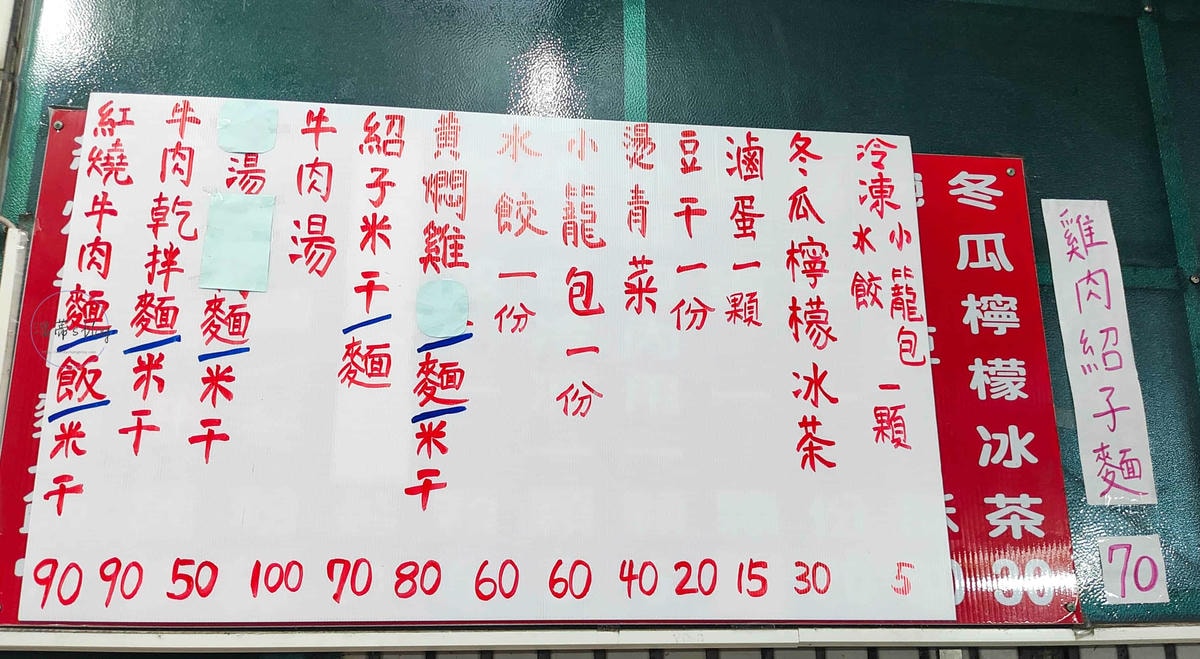 紅燒牛肉麵飯米干 90
牛肉乾拌麵米干 90
湯 麵米干 50
牛肉湯 100
紹子米干麵 70
黃燜雞 麵米干 80
水餃一份 60
小籠包一份 60
燙青菜 40
豆干一份 20
滷蛋一顆 15
冬瓜檸檬冰茶 30
冷凍小籠包水餃一顆 5
冬瓜檸檬冰茶 30
雞肉紹子麵 70